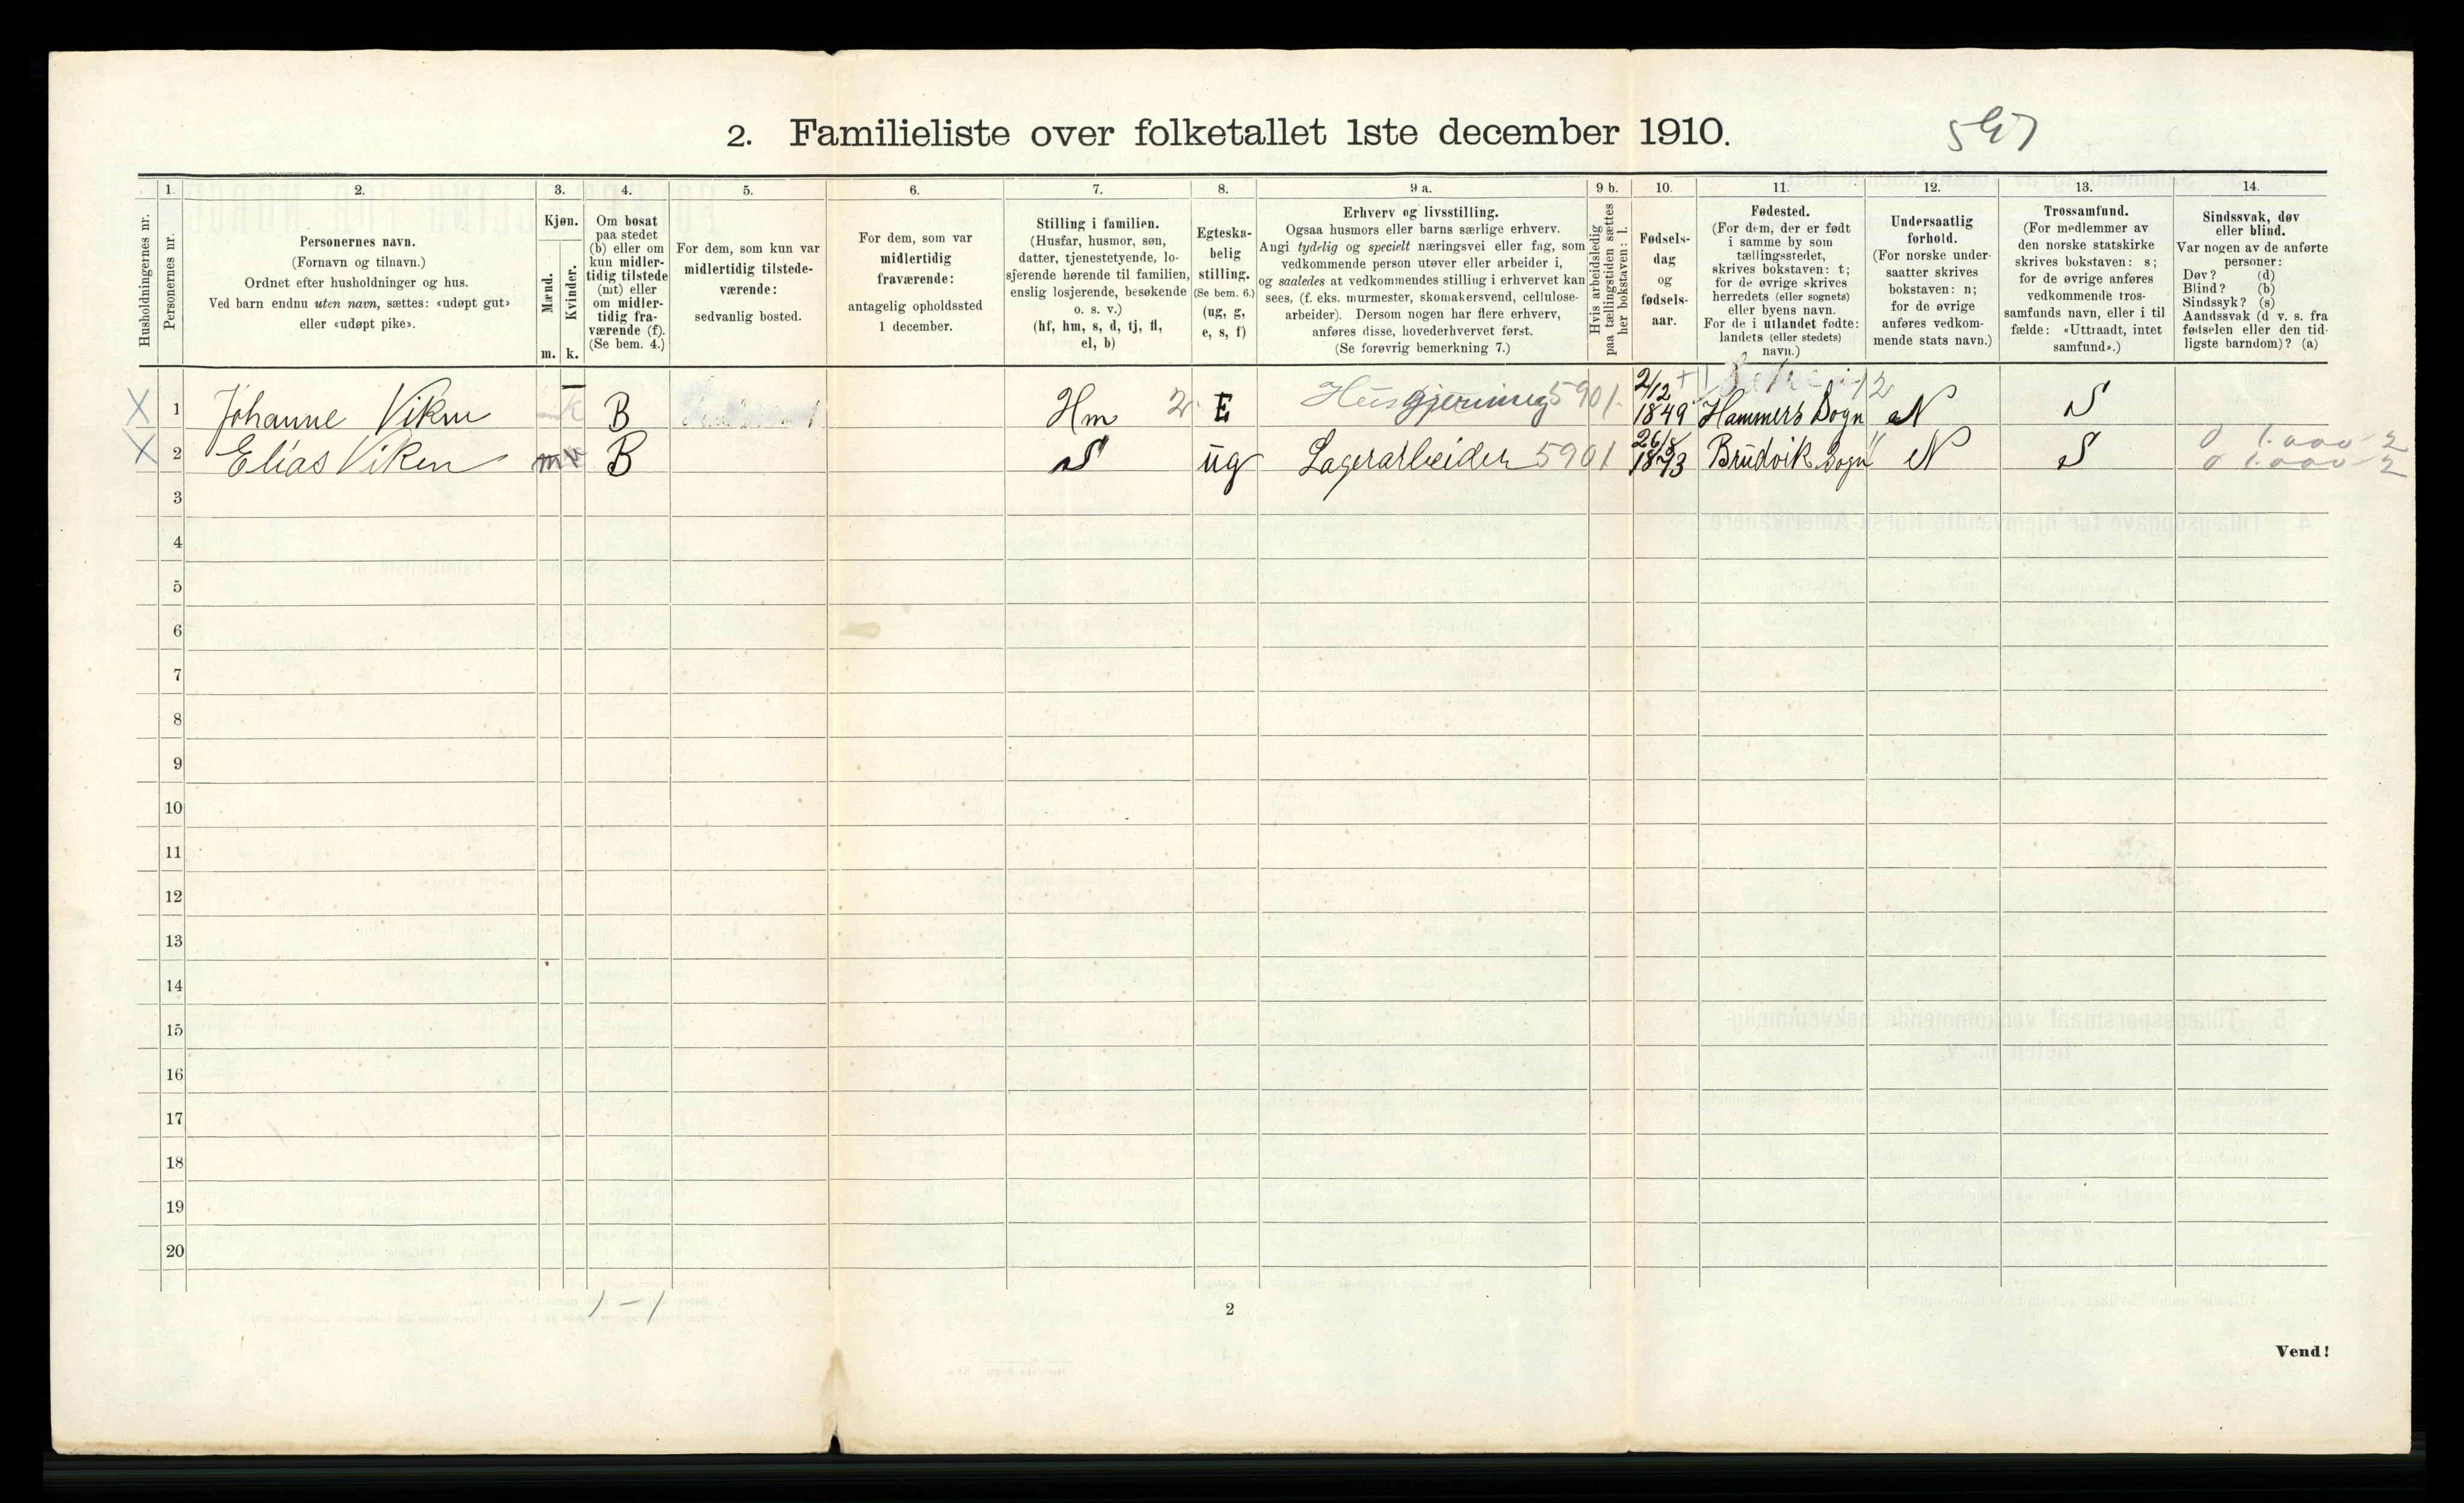 2. Familieliste over folketallet 1ste december 1910.
Husholdningernes nr.
1.
Personernes nr.
2.
Personernes navn.
(Fornavn og tilnavn.)
Ordnet efter husholdninger og hus.
Ved barn endnu uten navn, sættes: «udøpt gut»
eller «udøpt pike».
3.
Kjøn.
Mænd.
Kvinder.
m. k.
4.
Om bosat
paa stedet
(b) eller om
kun midler-
tidig tilstede
(mt) eller
om midler-
tidig fra-
værende (f).
(Se bem. 4.)
5.
For dem, som kun var
midlertidig tilstede-
værende:
sedvanlig bosted.
6.
For dem, som var
midlertidig
fraværende:
antagelig opholdssted
1 december.
7.
Stilling i familien.
(Husfar, husmor, søn,
datter, tjenestetyende, lo-
sjerende hørende til familien,
enslig losjerende, besøkende
o. s. v.)
(hf, hm, s, d, tj, fl,
el, b)
8.
Egteska-
belig
stilling.
(Se bem. 6.)
(ug, g,
e, s, f)
9 a.
Erhverv og livsstilling.
Ogsaa husmors eller barns særlige erhverv.
Angi tydelig og specielt næringsvei eller fag, som
vedkommende person utøver eller arbeider i,
og saaledes at vedkommendes stilling i erhvervet kan
sees, (f. eks. murmester, skomakersvend, cellulose-
arbeider). Dersom nogen har flere erhverv,
anføres disse, hovederhvervet først.
(Se forøvrig bemerkning 7.)
9 b.
Hvis arbeidsledig
paa tællingstiden sættes
her bokstaven: l.
10.
Fødsels-
dag
og
fødsels-
aar.
11.
Fødested.
(For dem, der er født
i samme by som
tællingsstedet,
skrives bokstaven: t;
for de øvrige skrives
herredets (eller sognets)
eller byens navn.
For de i utlandet fødte:
landets (eller stedets)
navn.)
12.
Undersaatlig
forhold.
(For norske under-
saatter skrives
bokstaven: n;
for de øvrige
anføres vedkom-
mende stats navn.)
13.
Trossamfund.
(For medlemmer av
den norske statskirke
skrives bokstaven: s;
for de øvrige anføres
vedkommende tros-
samfunds navn, eller i til-
fælde: «Uttraadt, intet
samfund».)
14.
Sindssvak, døv
eller blind.
Var nogen av de anførte
personer:
Døv? (d)
Blind? (b)
Sindssyk? (s)
Aandssvak (d v. s. fra
fødselen eller den tid-
ligste barndom)? (a)
X 1 Johanne Viken k B Hm 2 E Husgjerning 5901 2/12 1849 Hammers Sogn 12 N S
X 2 Elias Viken m B S ug Lagerarbeider 5901 26/8 Brudvik Sogn " N S
3
4
5
6
7
8
9
10
11
12
13
14
15
16
17
18
19
20
1 - 1
2
Vend!